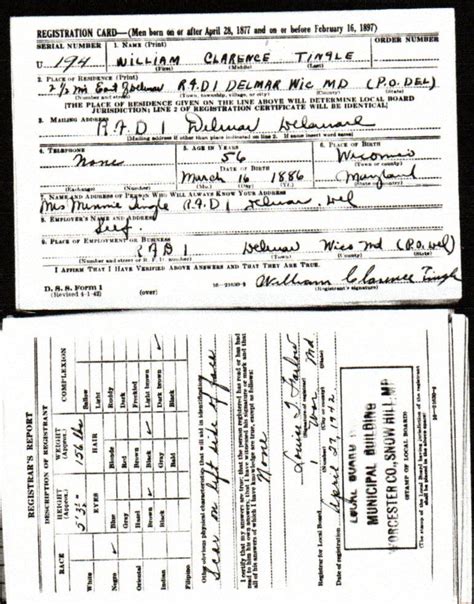 REGISTRATION CARD—(Men born on or after April 28, 1877 and on or before February 16, 1897)
SERIAL NUMBER 1. NAME (Print) ORDER NUMBER
U 194 WILLIAM CLARENCE TINGLE
(First) (Middle) (Last)
2. PLACE OF RESIDENCE (Print)
2 1/2 Mi East of Delmar R.F.D 1 DELMAR Wic MD (P.O. DEL)
(Number and street) (Town, township, village, or city) (County) (State)
[THE PLACE OF RESIDENCE GIVEN ON THE LINE ABOVE WILL DETERMINE LOCAL BOARD
JURISDICTION; LINE 2 OF REGISTRATION CERTIFICATE WILL BE IDENTICAL]
3. MAILING ADDRESS
R.F.D 1 Delmar Delaware
[Mailing address if other than place indicated on line 2. If same insert word same]
4. TELEPHONE 5. AGE IN YEARS 6. PLACE OF BIRTH
None 56 Wicomico
DATE OF BIRTH (Town or county)
March 16 1886 Maryland
(Exchange) (Number) (Mo.) (Day) (Yr.) (State or country)
7. NAME AND ADDRESS OF PERSON WHO WILL ALWAYS KNOW YOUR ADDRESS
Mrs Minnie Tingle R.F.D 1 Delmar, Del
8. EMPLOYER'S NAME AND ADDRESS
Self
9. PLACE OF EMPLOYMENT OR BUSINESS
R.F.D 1 Delmar Wico Md (P.O. Del)
(Number and street or R. F. D. number) (Town) (County) (State)
I AFFIRM THAT I HAVE VERIFIED ABOVE ANSWERS AND THAT THEY ARE TRUE.
D. S. S. Form 1 William Clarence Tingle
(Revised 4-1-42) (over) (Registrant's signature)
REGISTRAR'S REPORT
DESCRIPTION OF REGISTRANT
RACE HEIGHT (Approx.) WEIGHT (Approx.) COMPLEXION
156 lbs
EYES HAIR
White Blue Blonde Sallow
Negro Gray Red Light
Oriental Hazel Brown Ruddy
Indian Brown Black Dark
Filipino Black Gray Freckled
Bald Light brown
Dark brown
Black
Other obvious physical characteristics that will aid in identification
Scar on left side of face
I certify that my answers are true; that the person registered has read or has had read to him his own answers; that I have witnessed his signature or mark and that all of his answers of which I have knowledge are true, except as follows:
None
Louise T. Farlow
(Signature of registrar)
Registrar for Local Board 1 Wor Md
Date of registration April 27, 1942
LOCAL BOARD
MUNICIPAL BUILDING
WORCESTER CO., SNOW HILL, MD
(STAMP OF LOCAL BOARD)